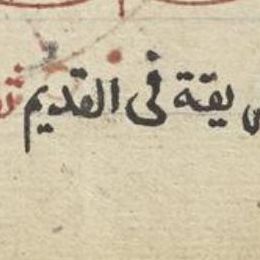 يقة فى القديم